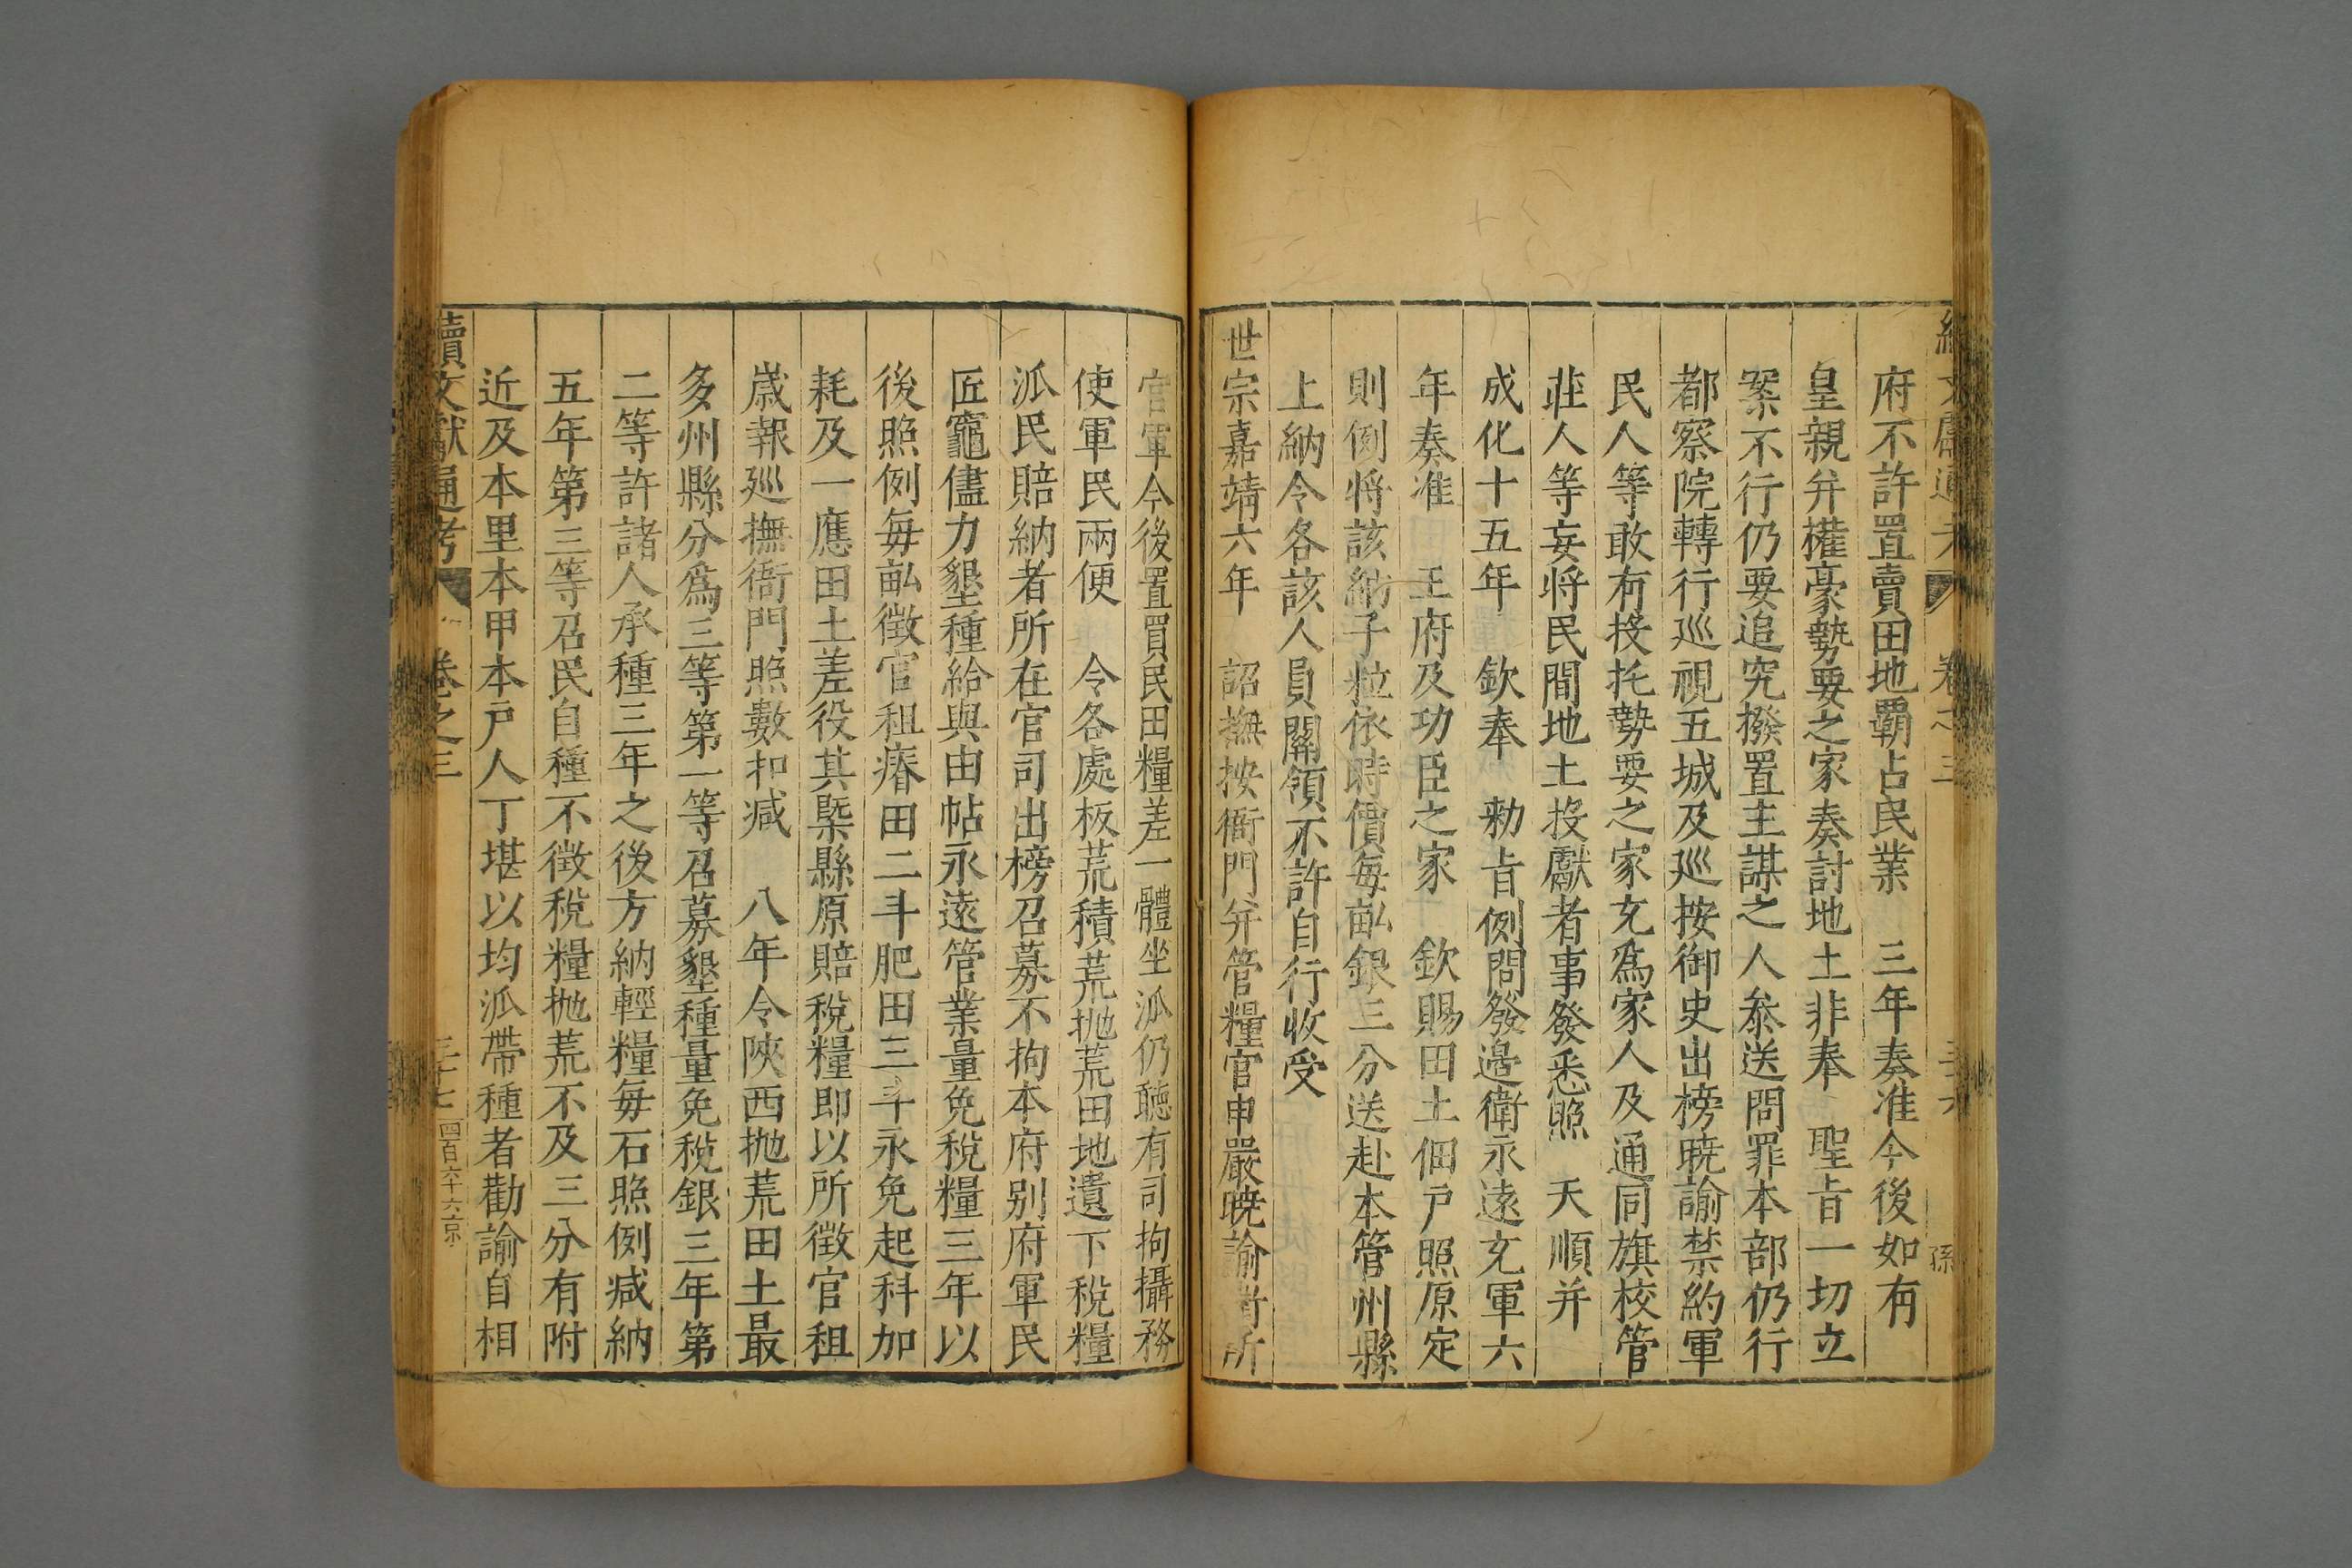 府不許置賣田地霸占民業　三年奏准今後如有
皇親并權豪勢要之家奏討地土非奉　聖旨一切立
案不行仍要追究撥置主謀之人叅送問罪本部仍行
都察院轉行廵視五城及廵按御史出榜曉諭禁約軍
民人等敢有投托勢要之家充爲家人及通同旗校管
莊人等妄將民間地土投獻者事發悉照　天順并
成化十五年　欽奉　勑旨例問發邊衛永遠充軍六
年奏准　王府及功臣之家　欽賜田土佃戸照原定
則例將該納子粒依時價每畝銀三分送赴本管州縣
上納令各該人員關領不許自行收受
世宗嘉靖六年　詔撫按衙門并管糧官申嚴曉諭衛所
官軍今後置買民田糧差一體坐派仍聽有司拘攝務
使軍民兩便　令各處板荒積荒抛荒田地遺下稅糧
派民賠納者所在官司出榜召募不拘本府别府軍民
匠竈儘力墾種給與由帖永遠管業量免稅糧三年以
後照例每畝徵官租瘠田二斗肥田三斗永免起科加
耗及一應田土差役其槩縣原賠稅糧即以所徵官租
歲報廵撫衙門照數扣减　八年令陝西抛荒田土最
多州縣分爲三等第一等召募墾種量免稅銀三年第
二等許諸人承種三年之後方納輕糧每石照例减納
五年第三等召民自種不徵稅糧抛荒不及三分有附
近及本里本甲本戸人丁堪以均派帶種者勸諭自相
續文獻通考　卷之三　三十七　四百六十六